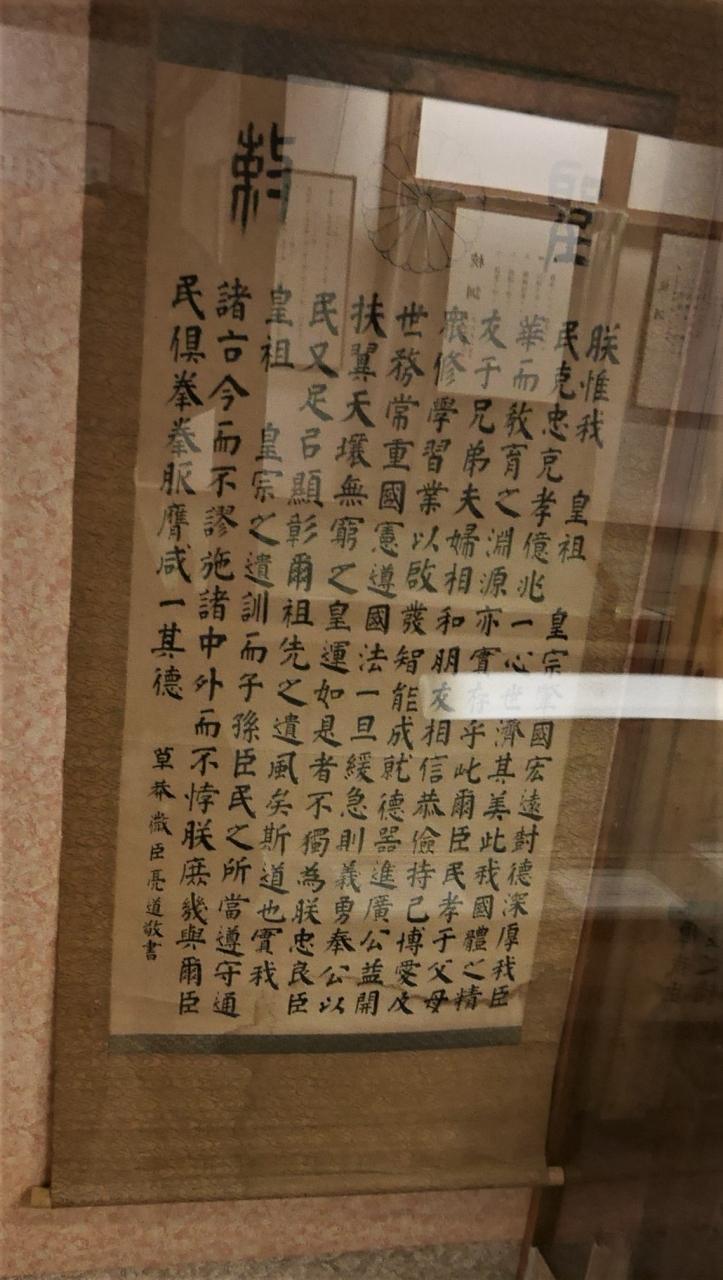 聖勅
朕惟我 皇祖 皇宗肇國宏遠封德深厚我臣
民克忠克孝億兆一心世濟其美此我國體之精
華而教育之淵源亦實存乎此爾臣民孝于父母
友于兄弟夫婦相和朋友相信恭儉持己博愛及
衆修學習業以啟發智能成就德器進廣公益開
世務常重國憲遵國法一旦緩急則義勇奉公以
扶翼天壤無窮之皇運如是者不獨為朕忠良臣
民又足㠯顯彰爾祖先之遺風矣斯道也實我
皇祖 皇宗之遺訓而子孫臣民之所當遵守通
諸古今而不謬施諸中外而不悖朕庶幾與爾臣
民倶拳拳服膺咸一其德
草莽微臣亮道敬書
校訓